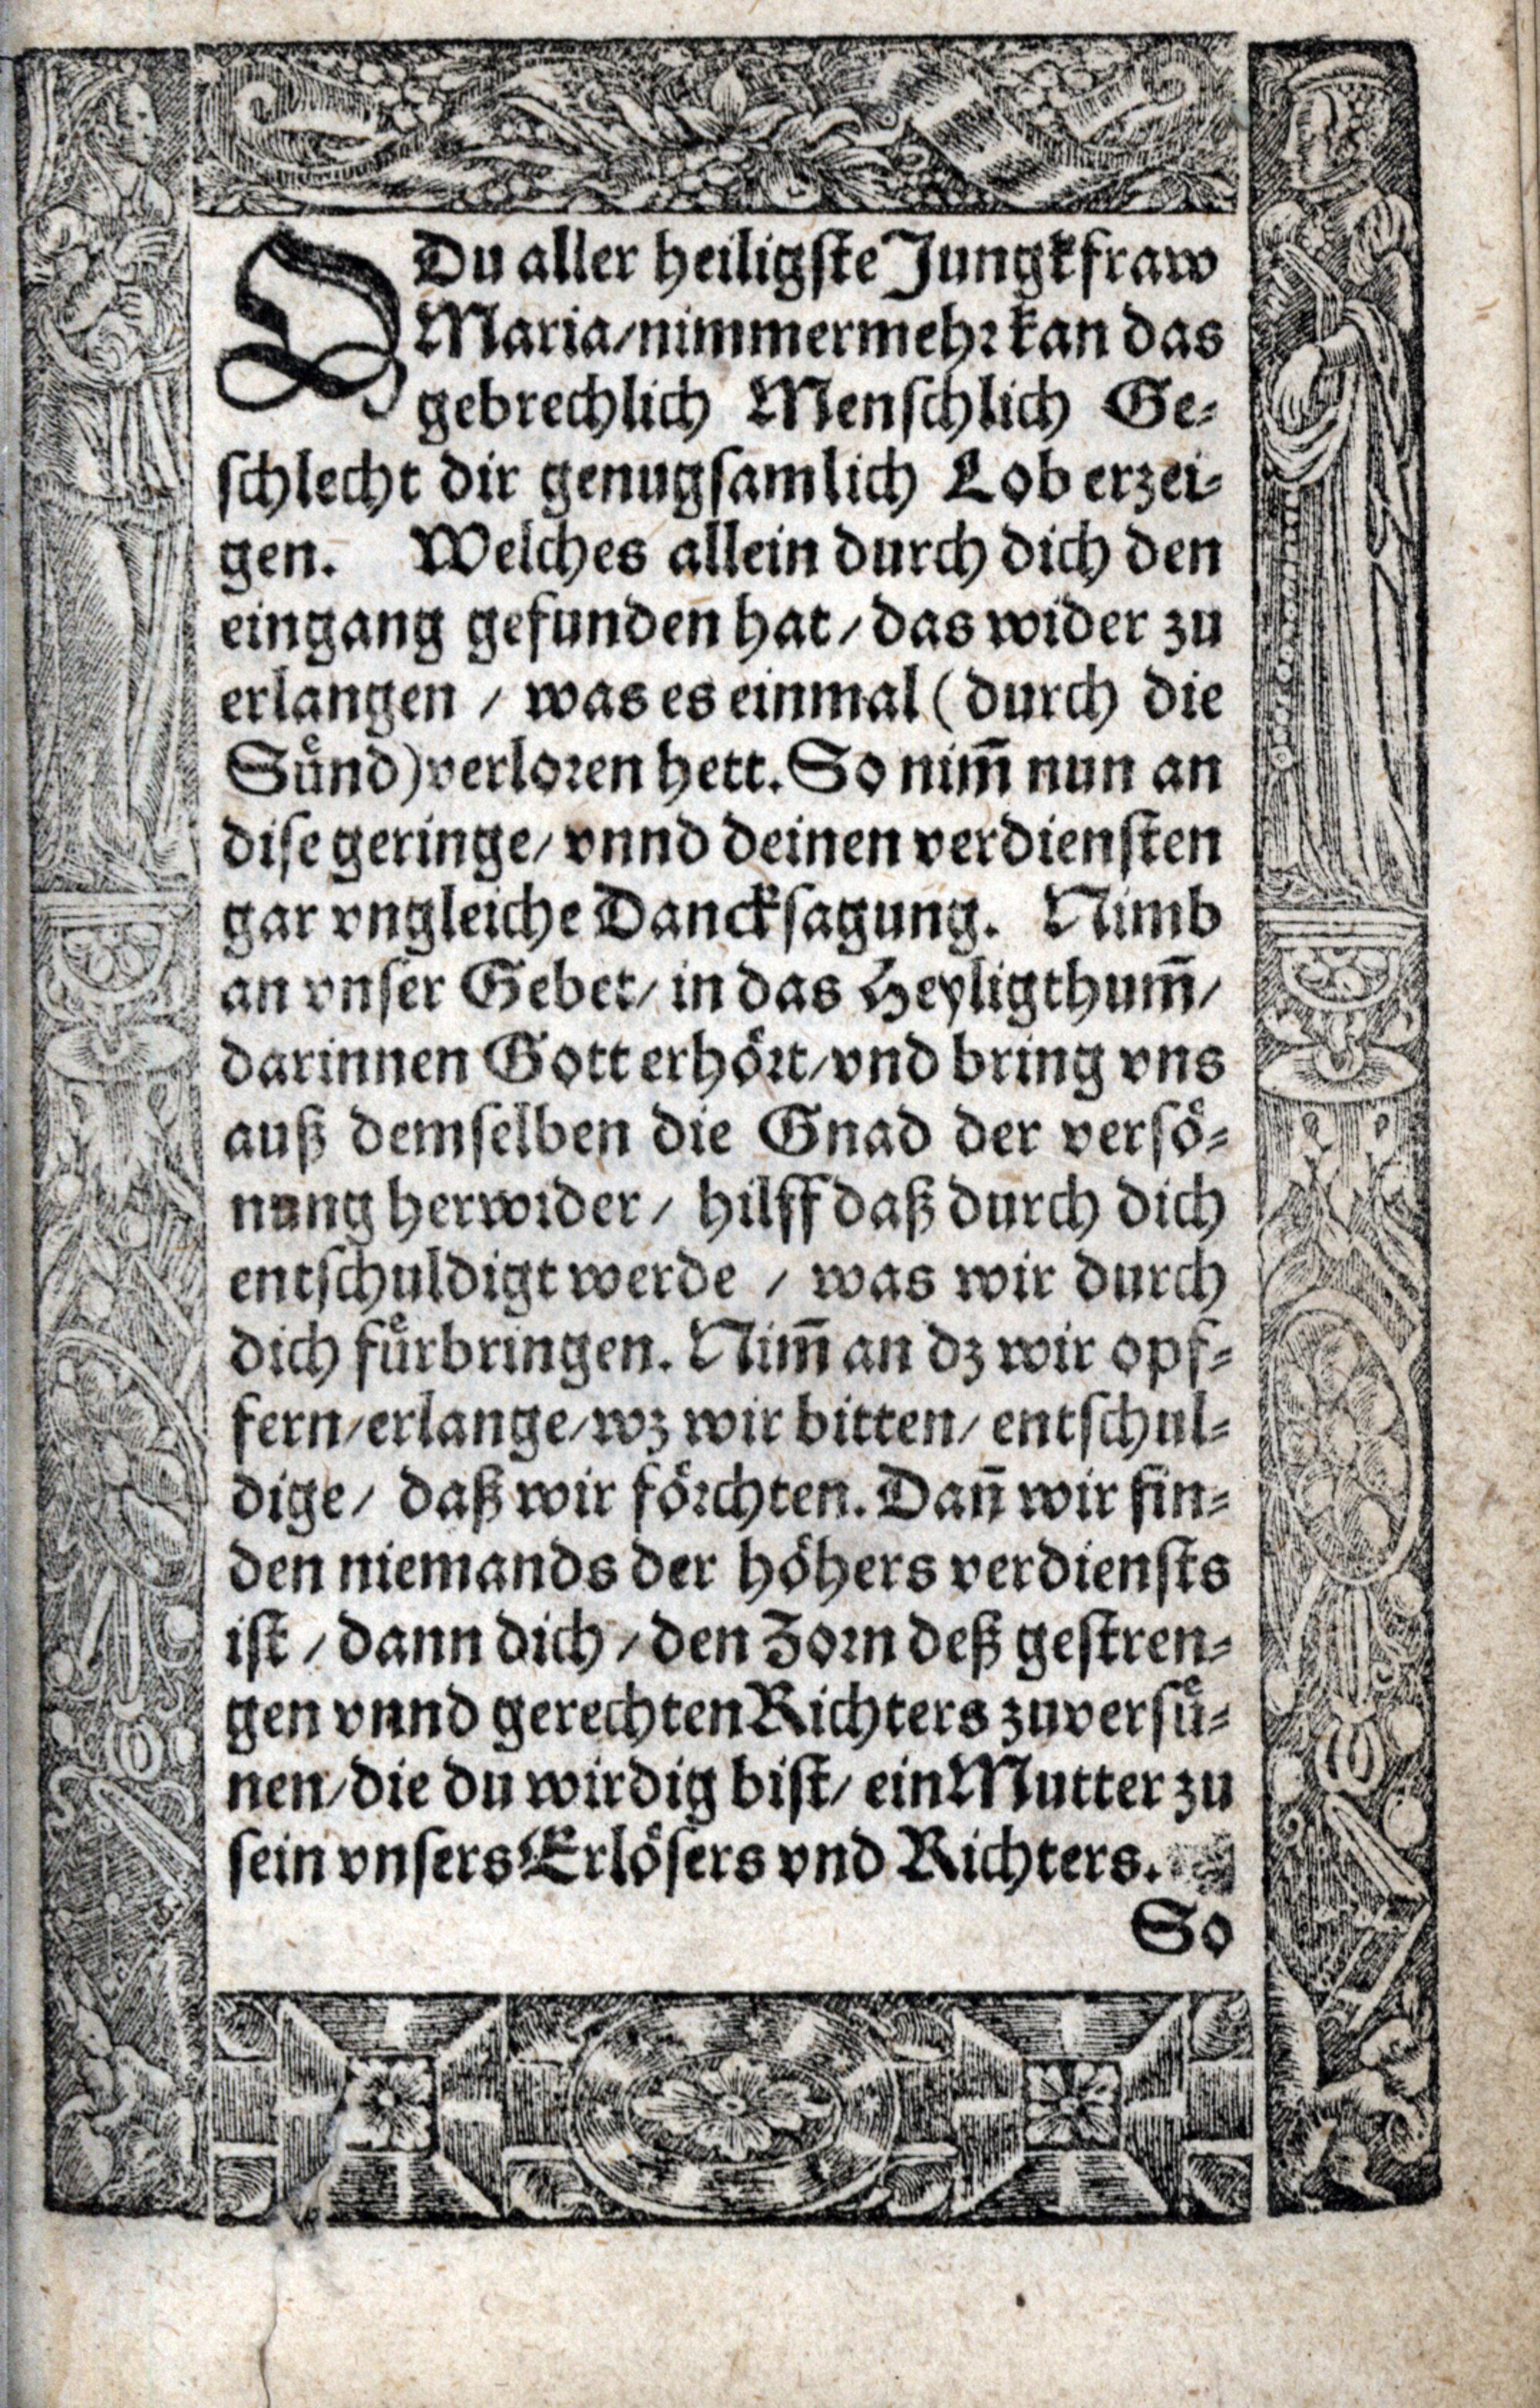 O Du aller heiligste Jungkfraw
Maria/nimmermehr kan das
gebrechlich Menschlich Ge-
schlecht dir genugsamlich Lob erzei-
gen. Welches allein durch dich den
eingang gefunden hat/das wider zu
erlangen / was es einmal (durch die
Sünd) verloren hett. So nim̄ nun an
dise geringe/ vnnd deinen verdiensten
gar vngleiche Dancksagung. Nimb
an vnser Gebet/ in das Heyligthum̄/
darinnen Gott erhört/vnd bring vns
auß demselben die Gnad der versö-
nung herwider/ hilff daß durch dich
entschuldigt werde / was wir durch
dich fürbringen. Nim̄ an dz wir opf-
fern/erlange/wz wir bitten/ entschul-
dige/ daß wir förchten. Dan̄ wir fin-
den niemands der höhers verdiensts
ist / dann dich / den Zorn deß gestren-
gen vnnd gerechten Richters zuversü-
nen/die du wirdig bist/ ein Mutter zu
sein vnsers Erlösers vnd Richters.
So